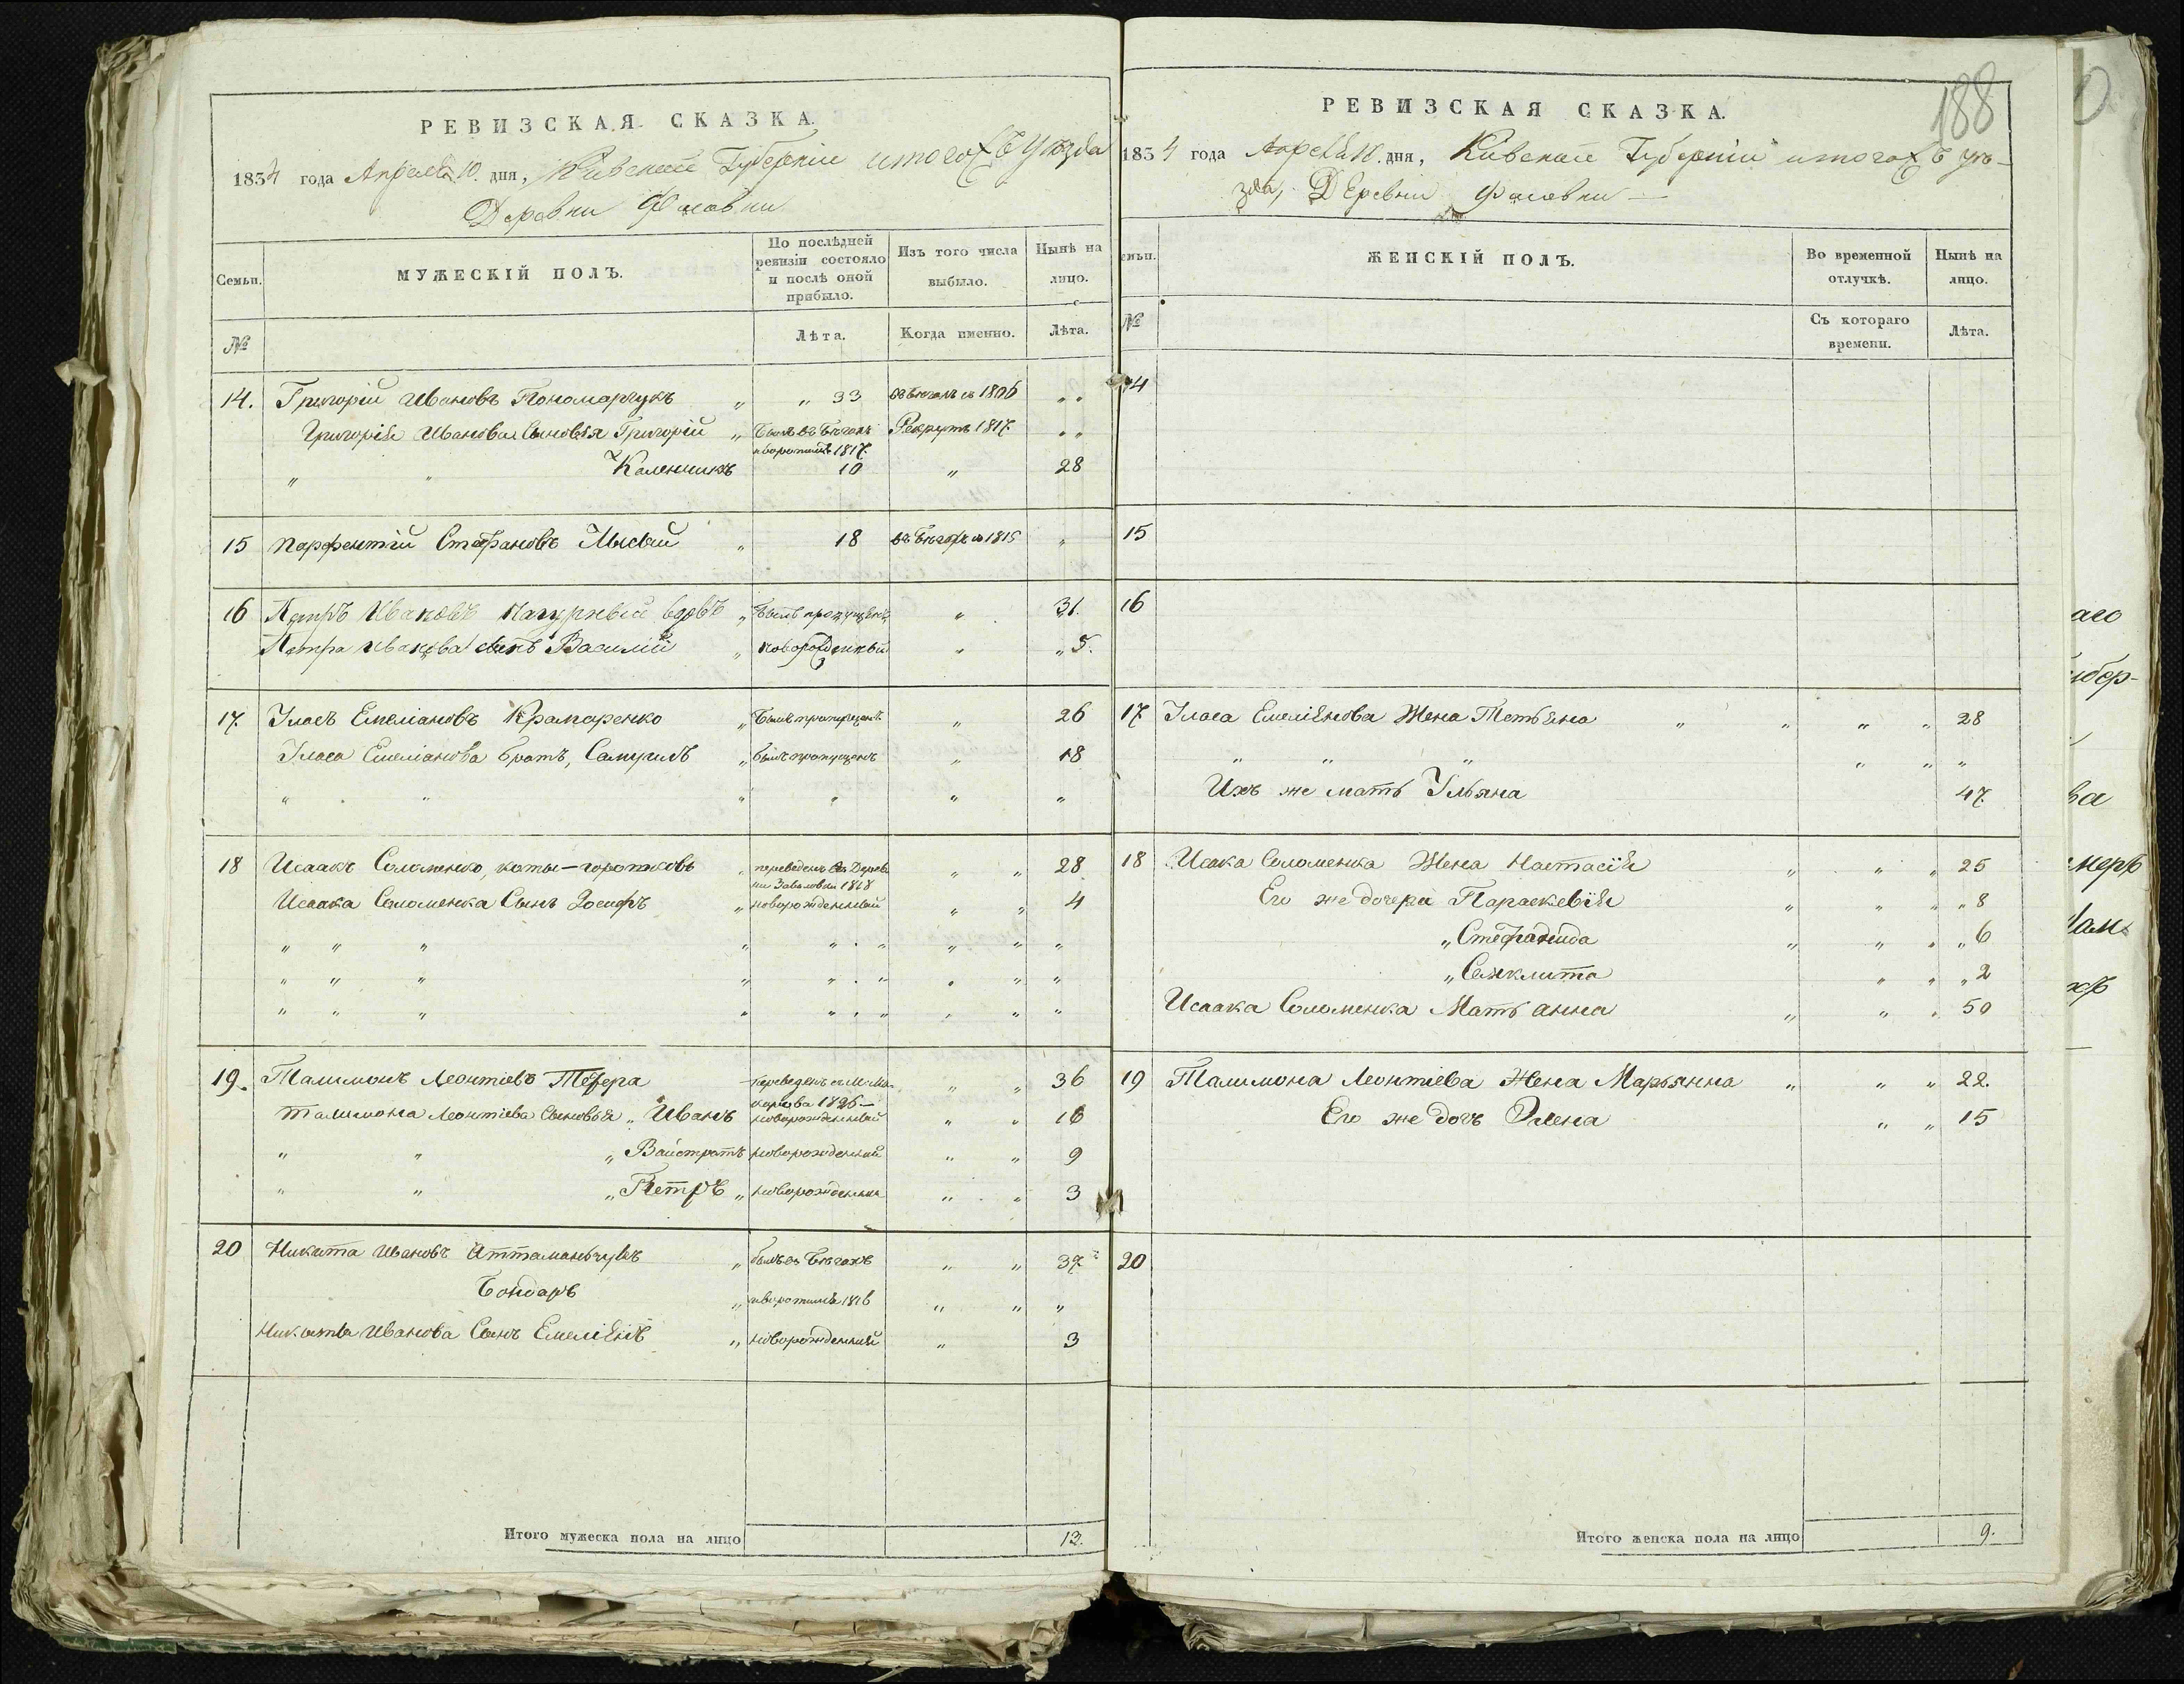 РЕВИЗСКАЯ СКАЗКА.
1834 года Апреля 10. дня, Киевской Губернии уезда
Деревни
Семьи.
МУЖЕСКІЙ ПОЛЪ.
По послѣдней ревизіи состояло и послѣ оной прибыло.
Изъ того числа выбыло.
Нынѣ на лицо.
№
Лѣта.
Когда именно.
Лѣта.
14. Григорій Ивановъ Пономарчукъ " " 33 въ бегахъ съ 1806 " "
Григорія Иванова Сыновья Григорій " былъ въ бегахъ Рекрутъ 1817 " "
1817
" " Каленникъ 10 " 28
15 Парфентій Стефановъ Лысый " 18 въ бегахъ с 1815 "
16 Петръ Ивановъ вдовъ " былъ пропущенъ " 31.
Петра Иванова сынъ Василій " новорожденный " " 5.
17. Уласъ Емеліановъ Крамаренко " былъ пропущенъ " 26
Уласа Емеліанова братъ, Самуилъ " былъ пропущенъ " 18
" " " " " "
18 Исаакъ Соломенко, " переведенъ из Дерев " " 28
ни 1828
Исаака Соломенка Сынъ Іосифъ " новорожденный " " 4
" " " " " " " " "
" " " " " " " " "
" " " " " " " " "
19. Талимонъ Леонтіевъ Тетера переведенъ с М. Ма- " " 36
карова 1826 —
Талимона Леонтіева Сыновья " Иванъ новорожденный " " 16
" " " новорожденный " " 9
" " " Петръ " новорожденный " " 3
20 Никита Ивановъ Аттаманчукъ " былъ въ бегахъ " " 37
Бондаръ " 1816 " " "
Никиты Иванова Сынъ Емеліянъ " новорожденный " 3
Итого мужеска пола на лицо 13.
188
РЕВИЗСКАЯ СКАЗКА.
1834 года Апреля 10. дня, Киевской Губерніи уе-
зда, Деревни
Семьи.
ЖЕНСКІЙ ПОЛЪ.
Во временной отлучкѣ.
Нынѣ на лицо.
№
Съ котораго времени.
Лѣта.
14
15
16
17 Уласа Емеліянова Жена Тетьяна " " " " 28
" " " " " "
Ихъ же мать Ульяна 47
18 Исака Соломенка Жена Настасія " " " 25
Его же дочери Параскевія " " " 8
" " " " 6
" Санклита " " " 2
Исаака Соломенка Мать Анна " " " 50
19 Талимона Леонтіева Жена Марьянна " " " 22.
Его же дочь Элена " " 15
20
Итого женска пола на лицо 9.